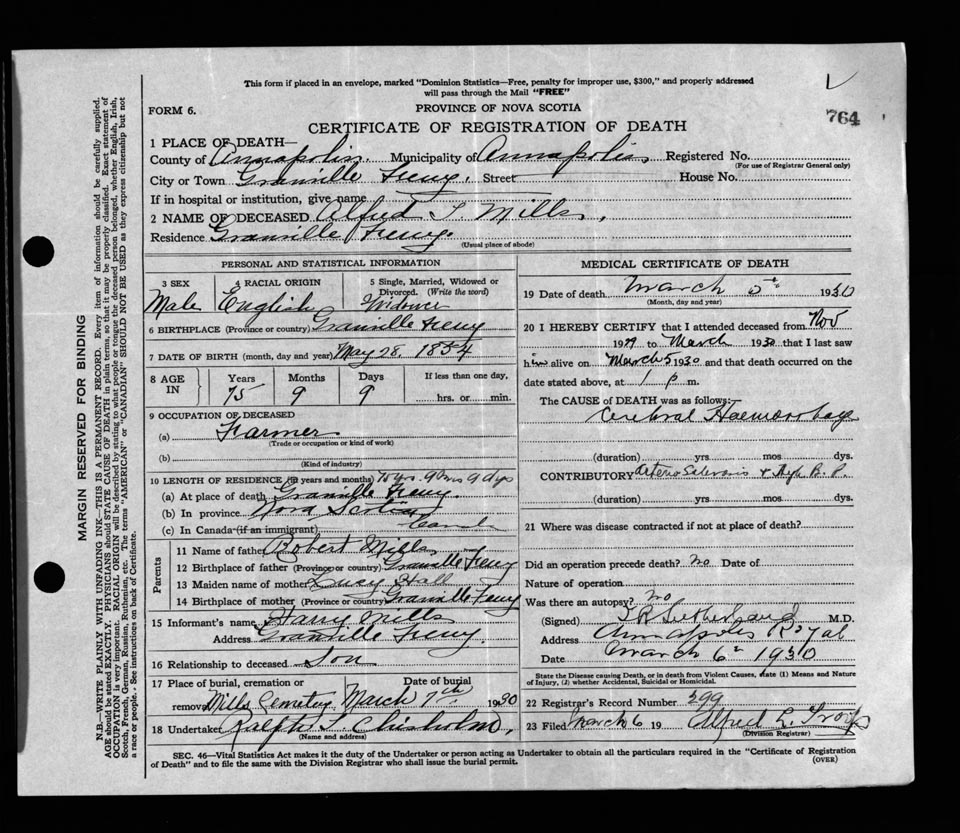 This form if placed in an envelope, marked "Dominion Statistics—Free, penalty for improper use, $300," and properly addressed
will pass through the Mail "FREE"
764
FORM 6.
PROVINCE OF NOVA SCOTIA
CERTIFICATE OF REGISTRATION OF DEATH
1 PLACE OF DEATH—
County of Annapolis. Municipality of Annapolis Registered No.
(For use of Registrar General only)
City or Town Granville Ferry. Street House No.
If in hospital or institution, give name
2 NAME OF DECEASED Alfred Mills.
Residence Granville Ferry.
(Usual place of abode)
PERSONAL AND STATISTICAL INFORMATION
3 SEX 4 RACIAL ORIGIN 5 Single, Married, Widowed or
Divorced. (Write the word)
Male English Widower
6 BIRTHPLACE (Province or country) Granville Ferry
7 DATE OF BIRTH (month, day and year) May 28. 1854
8 AGE IN Years Months Days If less than one day,
75 9 9 hrs. or min.
9 OCCUPATION OF DECEASED
(a) Farmer
(Trade or occupation or kind of work)
(b)
(Kind of industry)
10 LENGTH OF RESIDENCE (in years and months) 75 yrs. 9 mos 9 dys
(a) At place of death Granville Ferry.
(b) In province Nova Scotia
(c) In Canada (if an immigrant)
Parents
11 Name of father Robert Mills
12 Birthplace of father (Province or country) Granville Ferry
13 Maiden name of mother Lucy Hall
14 Birthplace of mother (Province or country) Granville Ferry
15 Informant's name Harry Mills
Address Granville Ferry.
16 Relationship to deceased Son
17 Place of burial, cremation or Date of burial
removal Mills Cemetery March 7th 1930
18 Undertaker Ralph S. Chisholm.
(Name and address)
MEDICAL CERTIFICATE OF DEATH
19 Date of death March 5th 1930
(Month, day and year)
20 I HEREBY CERTIFY that I attended deceased from Nov
1929 to March 1930 that I last saw
him alive on March 5 1930 and that death occurred on the
date stated above, at 1 p m.
The CAUSE OF DEATH was as follows:
Cerebral Haemorrhage
(duration) yrs mos. dys.
CONTRIBUTORY Arterio Sclerosis + High B. P.
(duration) yrs. mos. dys.
21 Where was disease contracted if not at place of death?
Did an operation precede death? no Date of
Nature of operation
Was there an autopsy? no
(Signed) Sutherland M.D.
Address Annapolis Royal
Date March 6th 1930
State the Disease causing Death, or in death from Violent Causes, state (1) Means and Nature
of Injury, (2) whether Accidental, Suicidal or Homicidal.
22 Registrar's Record Number 299
23 Filed March 6 19 Alfred L.
(Division Registrar)
SEC. 46—Vital Statistics Act makes it the duty of the Undertaker or person acting as Undertaker to obtain all the particulars required in the "Certificate of Registration
of Death" and to file the same with the Division Registrar who shall issue the burial permit.
(OVER)
MARGIN RESERVED FOR BINDING
N.B.—WRITE PLAINLY WITH UNFADING INK—THIS IS A PERMANENT RECORD. Every item of information should be carefully supplied.
AGE should be stated EXACTLY. PHYSICIANS should STATE CAUSE OF DEATH in plain terms, so that it may be properly classified. Exact statement of
OCCUPATION is very important. RACIAL ORIGIN will be described by stating to what people or tongue the deceased person belonged, whether English, Irish,
Scotch, French, German, Russian, Ruthenian, etc. The terms "AMERICAN" or "CANADIAN" SHOULD NOT BE USED as they express citizenship but not
a race or people. See instructions on back of Certificate.